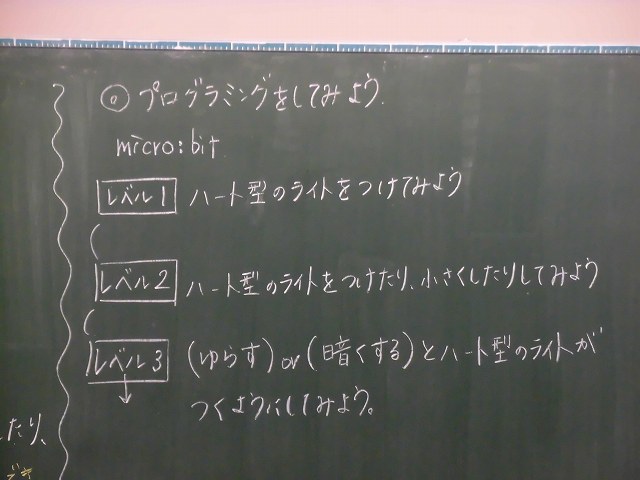 ◎ プログラミングをしてみよう.
micro:bit.
レベル1 ハート型のライトをつけてみよう
レベル2 ハート型のライトをつけたり、小さくしたりしてみよう
レベル3 (ゆらす)or(暗くする)とハート型のライトが
つくようにしてみよう。
たり、
デキ